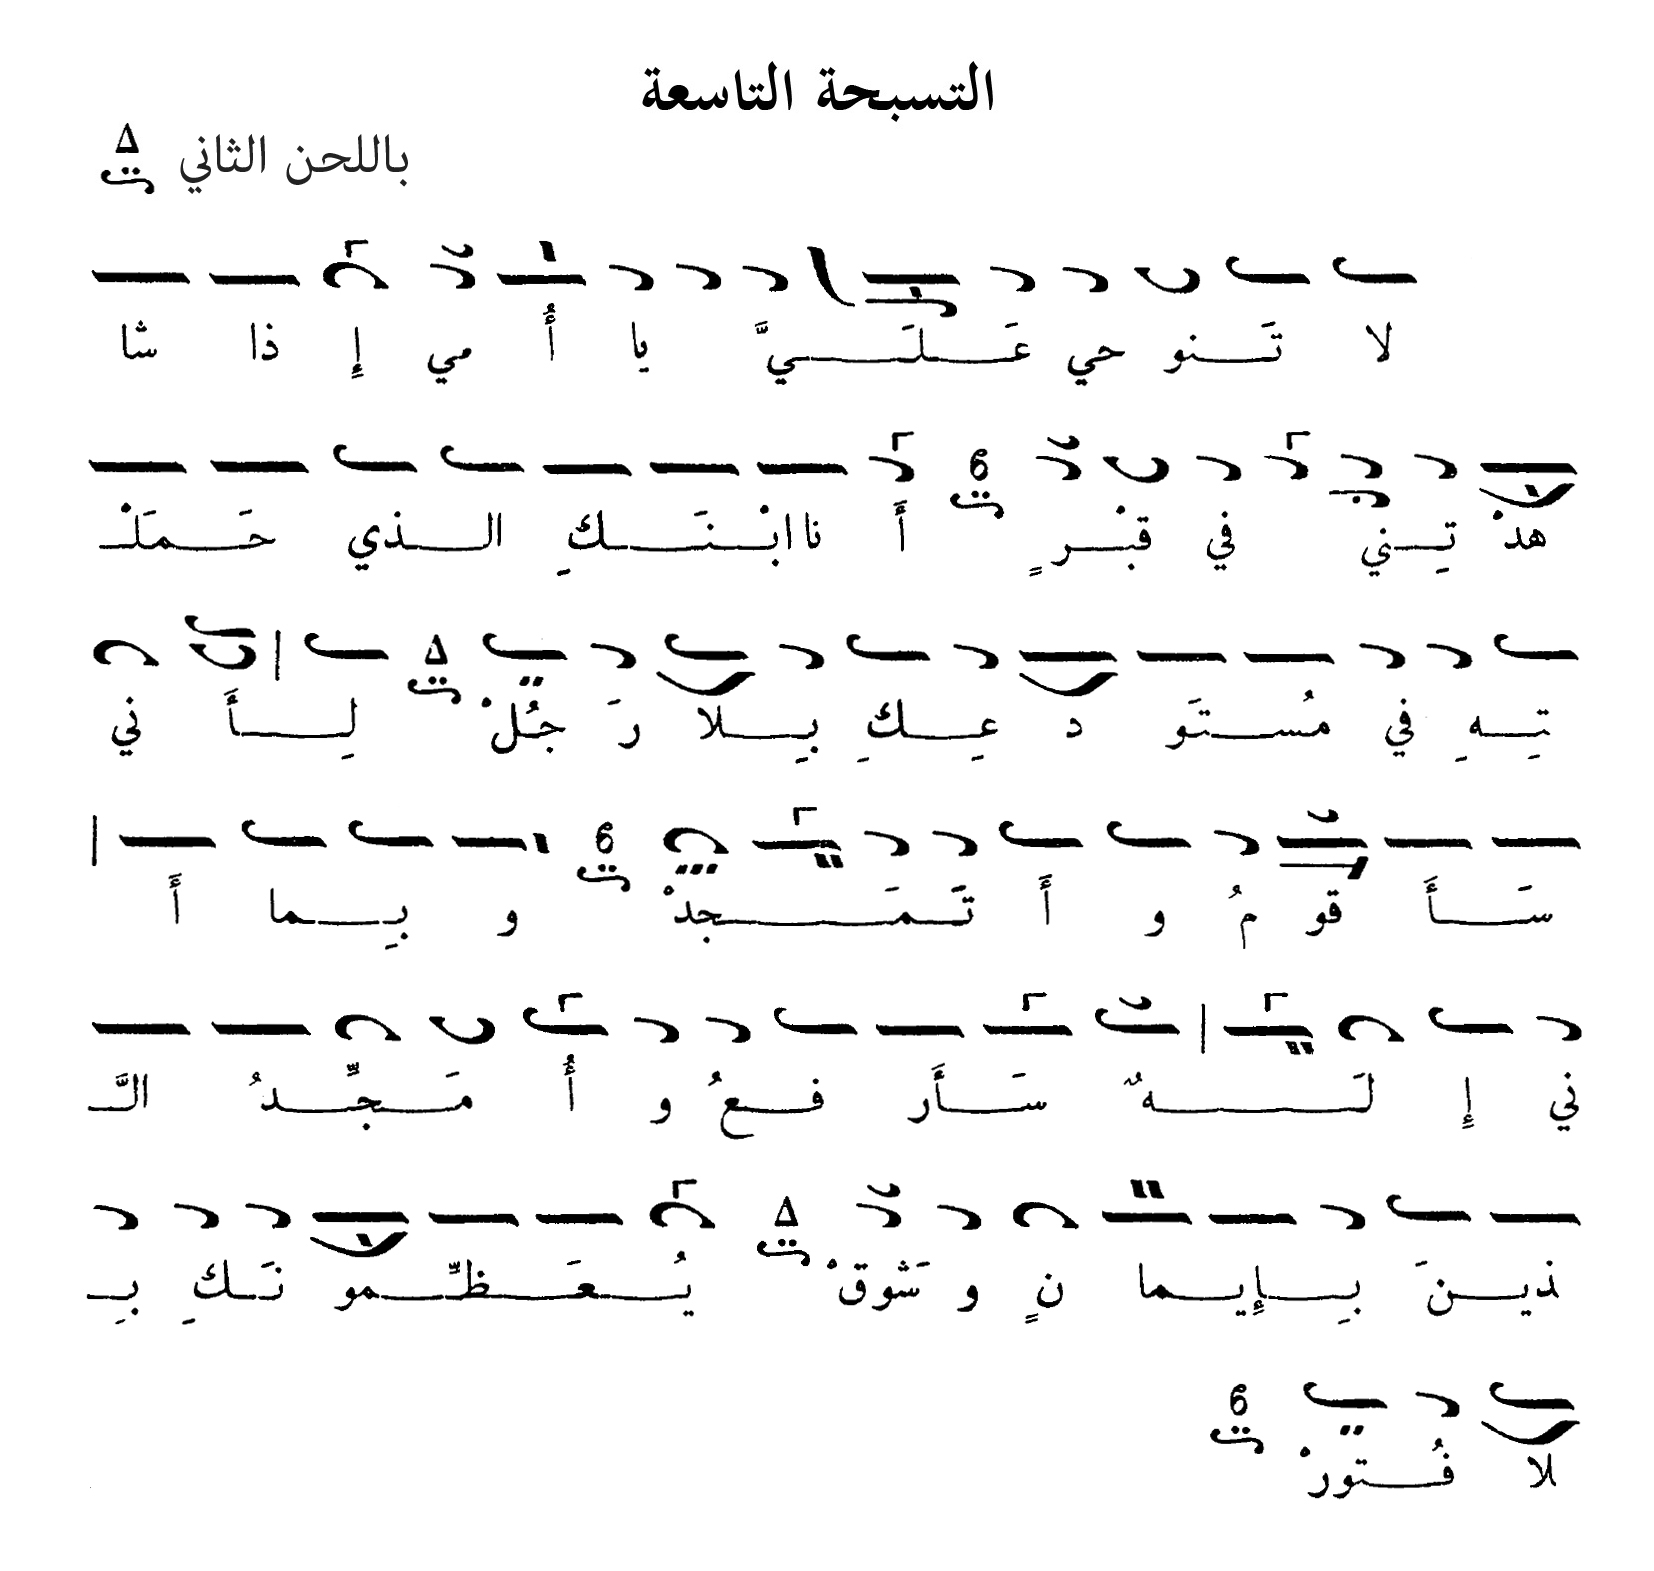 التسبحة التاسعة
باللحن الثاني
لا تَنوحي عَلَيَّ يا أُمي إِذا شا
هدْتِني في قبْرٍ أَنا ابْنَكِ الذي حَمَلْ
تِهِ في مُستَودعِكِ بِلا رَجُلْ لِأَني
سَأَقومُ وأَتَمَجدْ وبِما أَ
ني إِلَهٌ سَأَرفعُ وأُمَجِّدُ الَّ
ذينَ بِإِيمانٍ وشَوقْ يُعَظِّمونَكِ بِ
لا فُتورْ